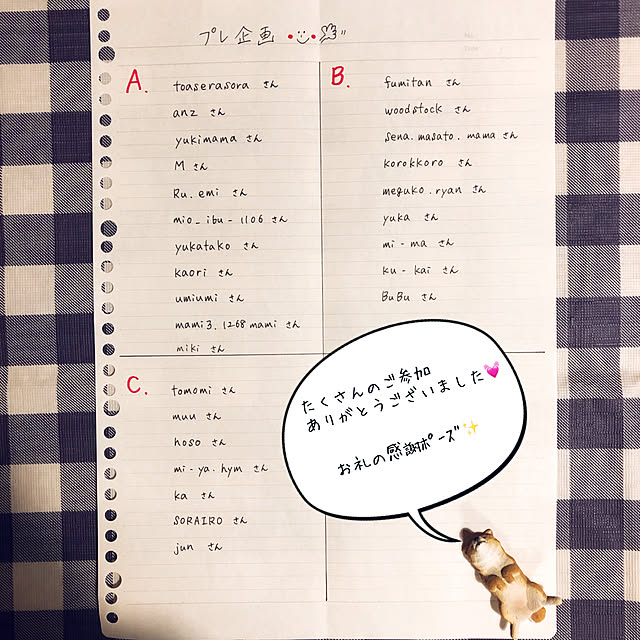 プレ企画
A.
toaserasora さん
anz さん
yukimama さん
M さん
Ru.emi さん
mio_ibu-1106 さん
yukatako さん
kaori さん
umiumi さん
mami3.1268mami さん
miki さん
B.
fumitan さん
woodstock さん
sena.masato.mama さん
korokkoro さん
meguko.ryan さん
yuka さん
mi-ma さん
ku-kai さん
BuBu さん
C.
tomomi さん
muu さん
hoso さん
mi-ya.hym さん
ka さん
SORAIRO さん
jun さん
たくさんのご参加
ありがとうございました💓
お礼の感謝ポーズ✨